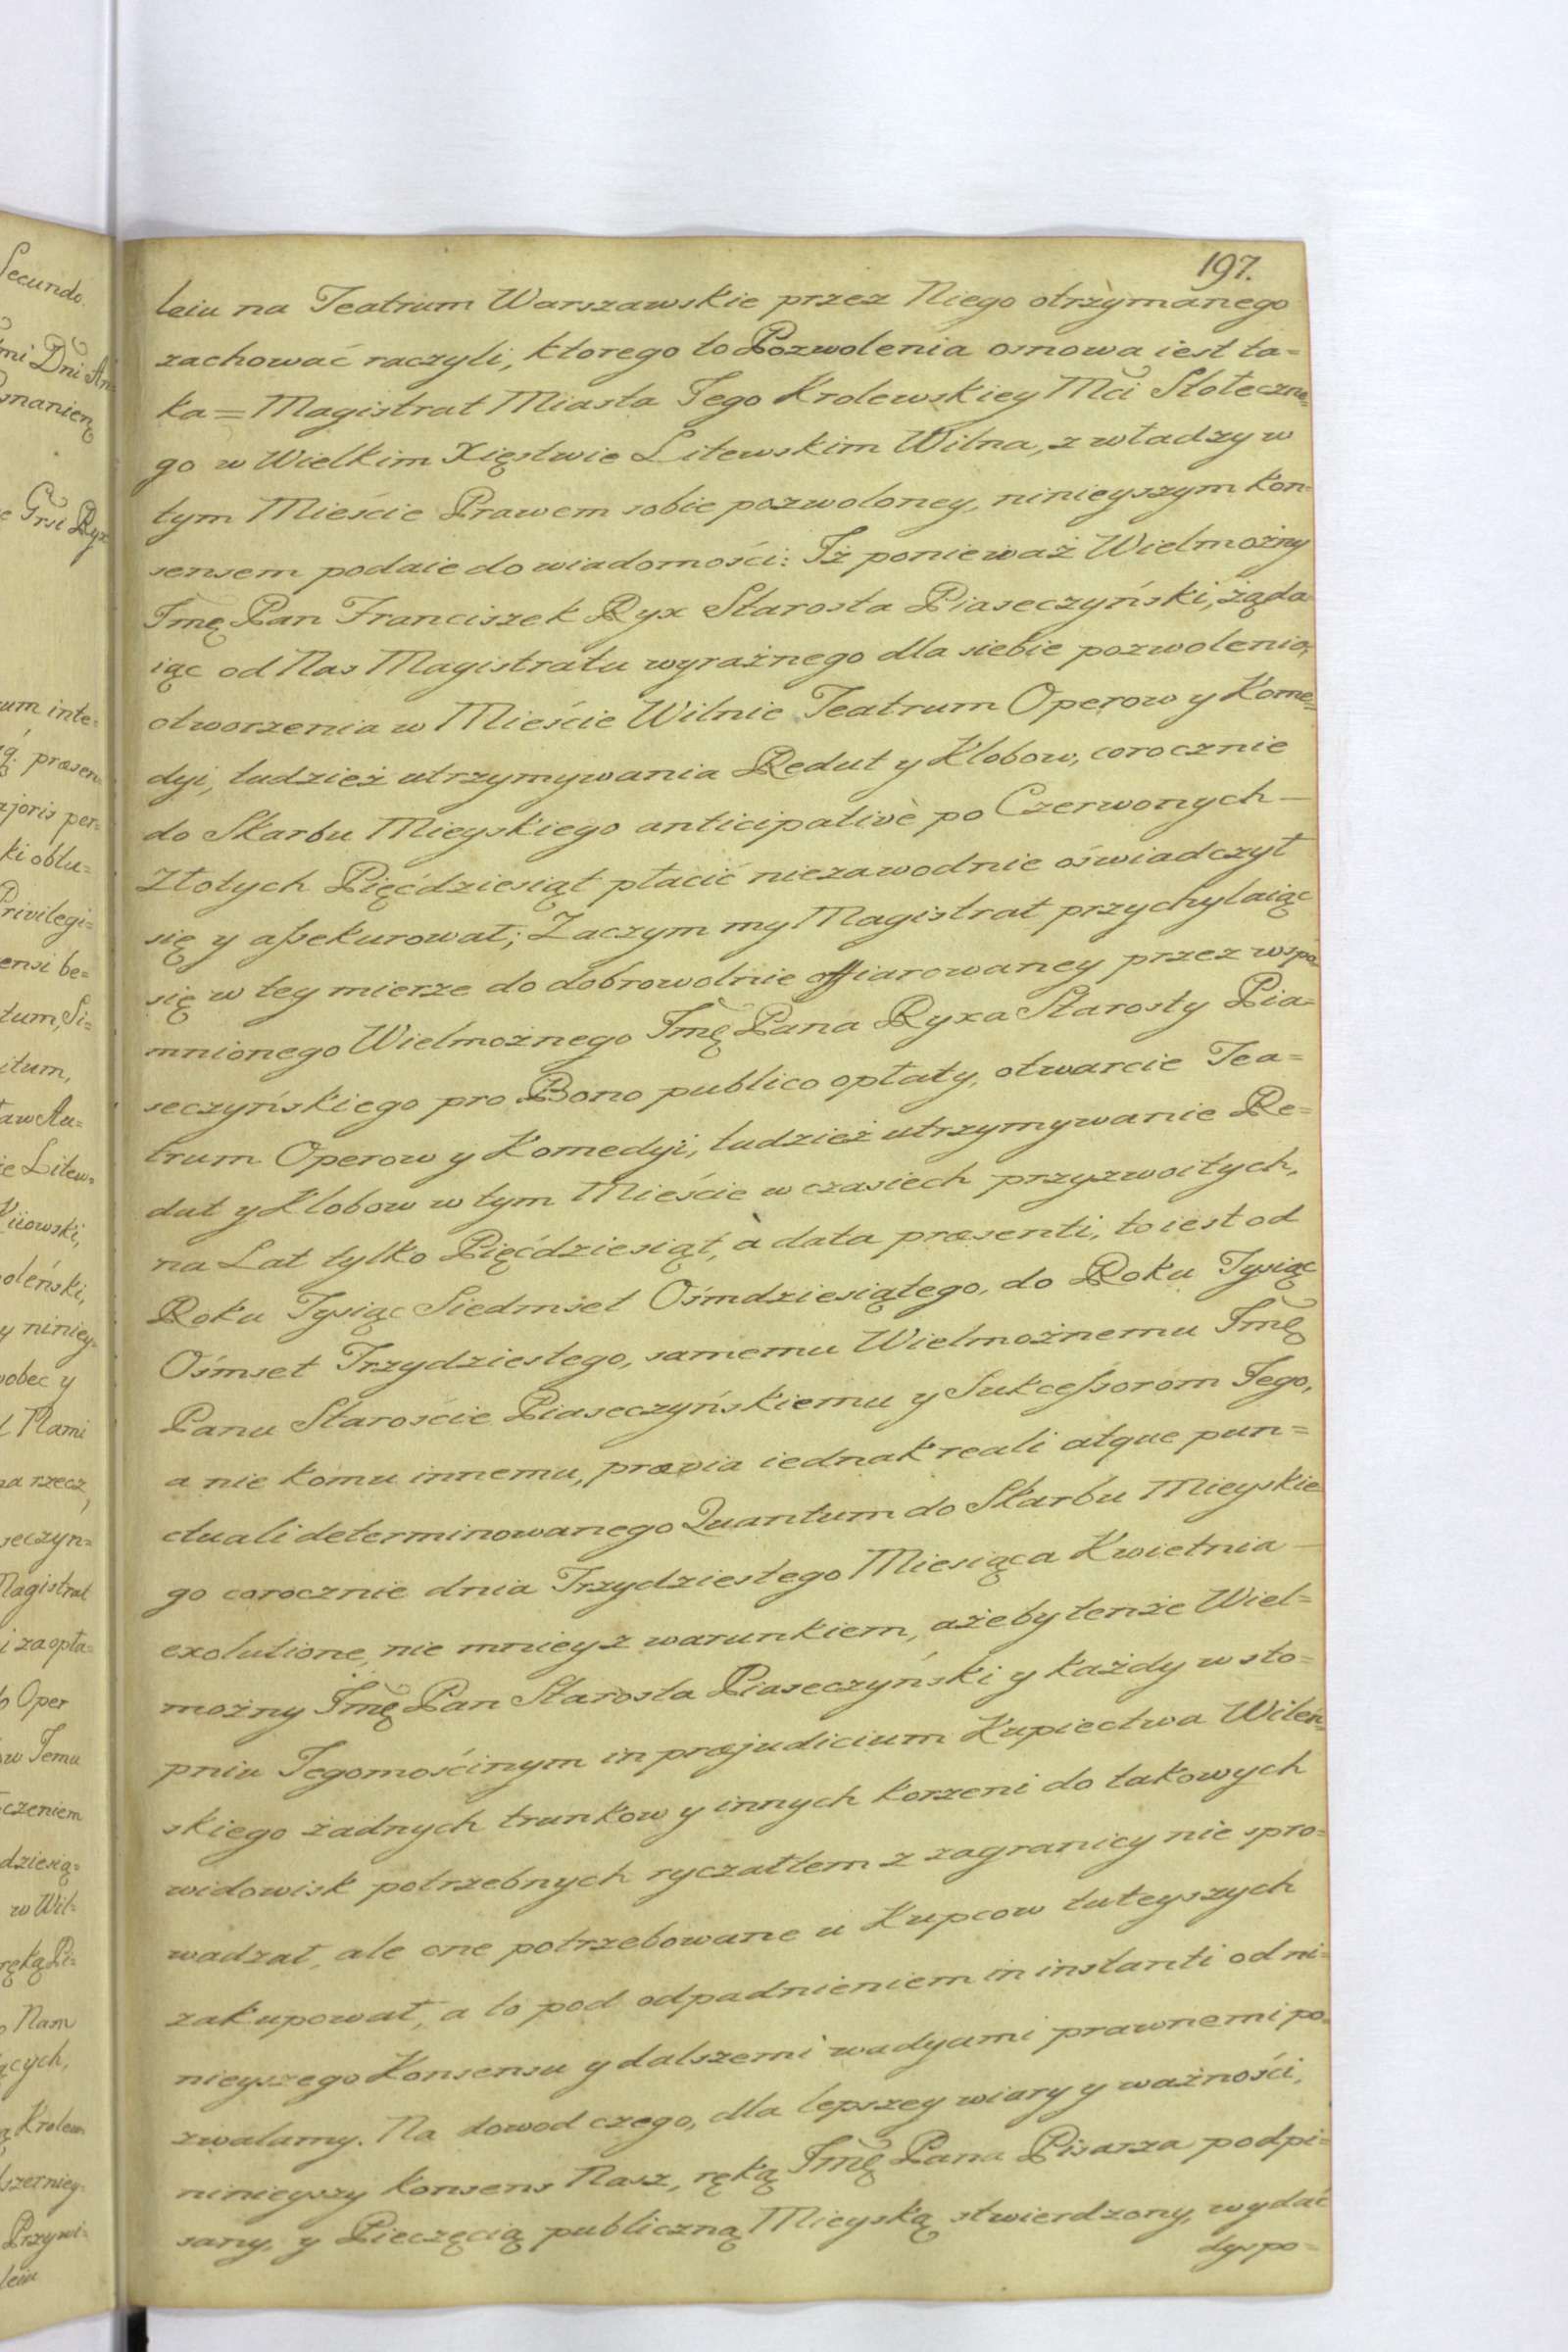 197.
leiu na Teatrum Warszawskie przez Niego otrzymanego
zachować raczyli, ktorego to Pozwolenia osnowa iest ta=
ka = Magistrat Miasta Jego Krolewskiey Mći Stołeczne=
go w Wielkim Xięstwie Litewskim Wilna, z władzy w
tym Mieście Prawem sobie pozwoloney, ninieyszym kon=
sensem podaie do wiadomości: Iż ponieważ Wielmożny
Jmę Pan Franciszek Ryx Starosta Piaseczyński, żąda
iąc od Nas Magistratu wyraźnego dla siebie pozwolenia,
otworzenia w Mieście Wilnie Teatrum Operow y Kome=
dyi, tudzież utrzymywania Redut y Klobow, corocznie
do Skarbu Mieyskiego anticipativè po Czerwonych —
Złotych Pięćdziesiąt płacić niezawodnie oświadczył
się y aſsekurował; Zaczym my Magistrat przychylaiąc
się w tey mierze do dobrowolnie offiarowaney przez wspo
mnionego Wielmożnego Jmę Pana Ryxa Starosty Pia=
seczyńskiego pro Bono publico opłaty, otwarcie Tea=
trum Operow y Komedyi, tudzież utrzymywanie Re=
dut y Klobow w tym Mieście w czasiech przyzwoitych,
na Lat tylko Pięćdziesiąt, à data præsenti, to iest od
Roku Tysiąc Siedmset Ośmdziesiątego, do Roku Tysiąc
Ośmset Trzydziestego, samemu Wielmożnemu Jmę
Panu Staroście Piaseczyńskiemu y Sukceſsorom Jego,
a nie komu innemu, prævia iednak reali atque pun=
ctuali determinowanego Quantum do Skarbu Mieyskie
go corocznie dnia Trzydziestego Miesiąca Kwietnia —
exolutione, nie mniey z warunkiem, ażeby tenże Wiel=
możny Jmę Pan Starosta Piaseczyński y każdy w sto=
pniu Jegomościnym in præjudicium Kupiectwa Wileń=
skiego żadnych trunkow y innych korzeni do takowych
widowisk potrzebnych ryczałtem z zagranicy nie spro=
wadzał, ale one potrzebowane u Kupcow tuteyszych
zakupował, a to pod odpadnieniem in instanti od ni=
nieyszego Konsensu y dalszemi wadyami prawnemi po=
zwalamy. Na dowod czego, dla lepszey wiary y ważności,
ninieyszy konsens Nasz, ręką Jmę Pana Pisarza podpi=
sany, y Pieczęcią publiczną Mieyską stwierdzony, wydać
dyspo=